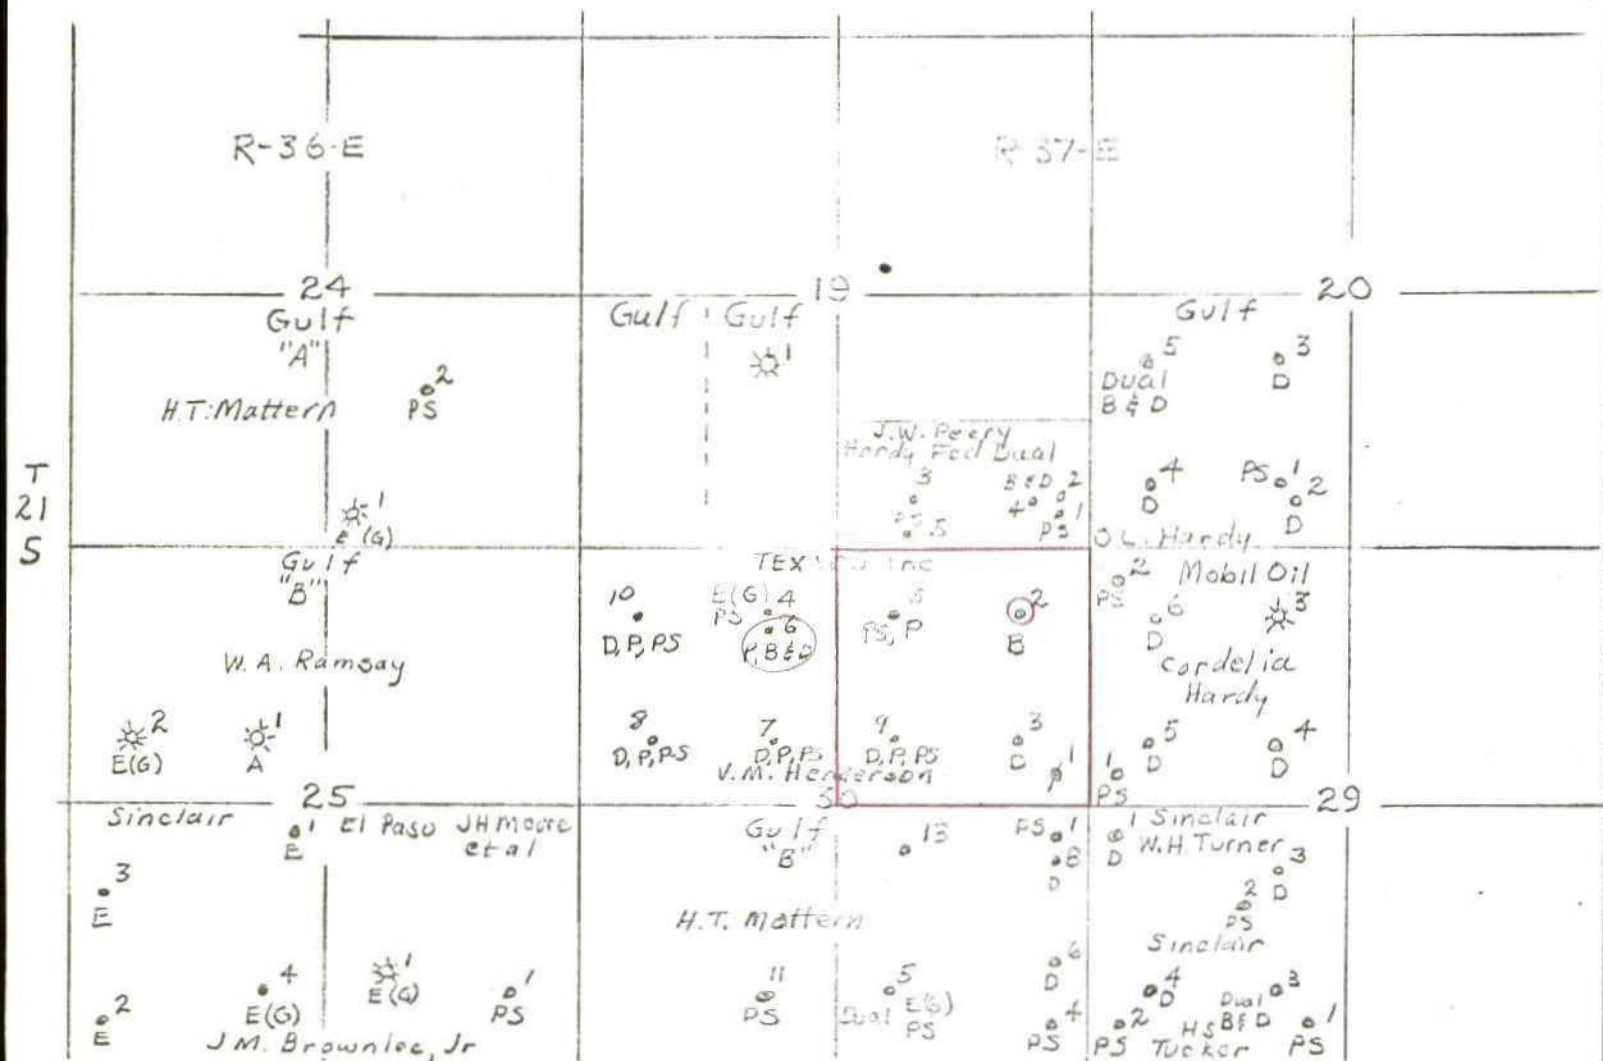 R-36-E
R-37-E
24
19
20
Gulf
"A"
H.T. Mattern
2
PS
1
E(G)
Gulf
Gulf
1
J.W. Peery
Hardy Fed Dual
3
B & D 2
4
1
PS
5
Gulf
5
Dual
B & D
3
D
4
D
PS 1
2
D
O.L. Hardy
T
21
S
Gulf
"B"
W.A. Ramsay
2
E(G)
1
A
10
D, P, PS
E(G) 4
PS
6
P, B & D
PS, P
2
B
8
D, P, PS
7
D, P, PS
V.M. Henderson
9
D, P, PS
3
1
2
PS
Mobil Oil
6
D
3
Cordelia
Hardy
5
D
4
D
1
PS
25
30
29
Sinclair
1
E
El Paso JH Moore
et al
3
E
4
E(G)
1
E(G)
1
PS
2
E
J.M. Brownlee, Jr
Gulf
"B"
13
PS 1
8
D
H.T. Mattern
11
PS
5
Dual E(G)
PS
6
D
4
PS
1 Sinclair
D W.H. Turner
3
D
2
PS
Sinclair
4
D
Dual 3
B & D
2
PS
HS
Tucker
1
PS